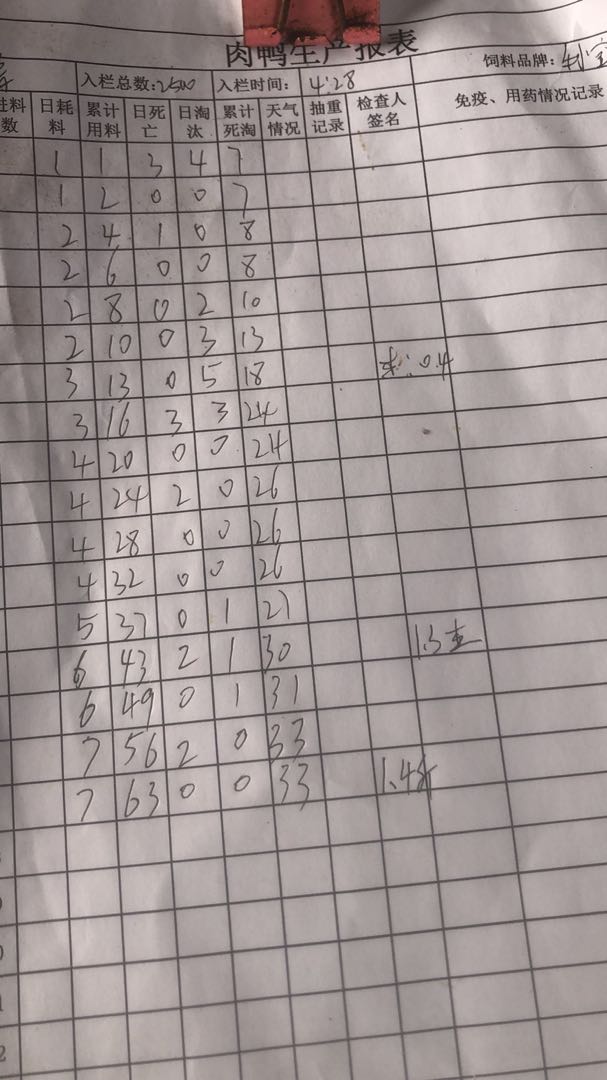 肉鸭生产报表
入栏总数:2500 入栏时间: 4.28 饲料品牌:
进料数 日耗料 累计用料 日死亡 日淘汰 累计死淘 天气情况 抽重记录 检查人签名 免疫、用药情况记录
1 1 3 4 7
1 2 0 0 7
2 4 1 0 8
2 6 0 0 8
2 8 0 2 10
2 10 0 3 13
3 13 0 5 18 0.4
3 16 3 3 24
4 20 0 0 24
4 24 2 0 26
4 28 0 0 26
4 32 0 0 26
5 37 0 1 27
6 43 2 1 30 1.3
6 49 0 1 31
7 56 2 0 33
7 63 0 0 33 1.4斤